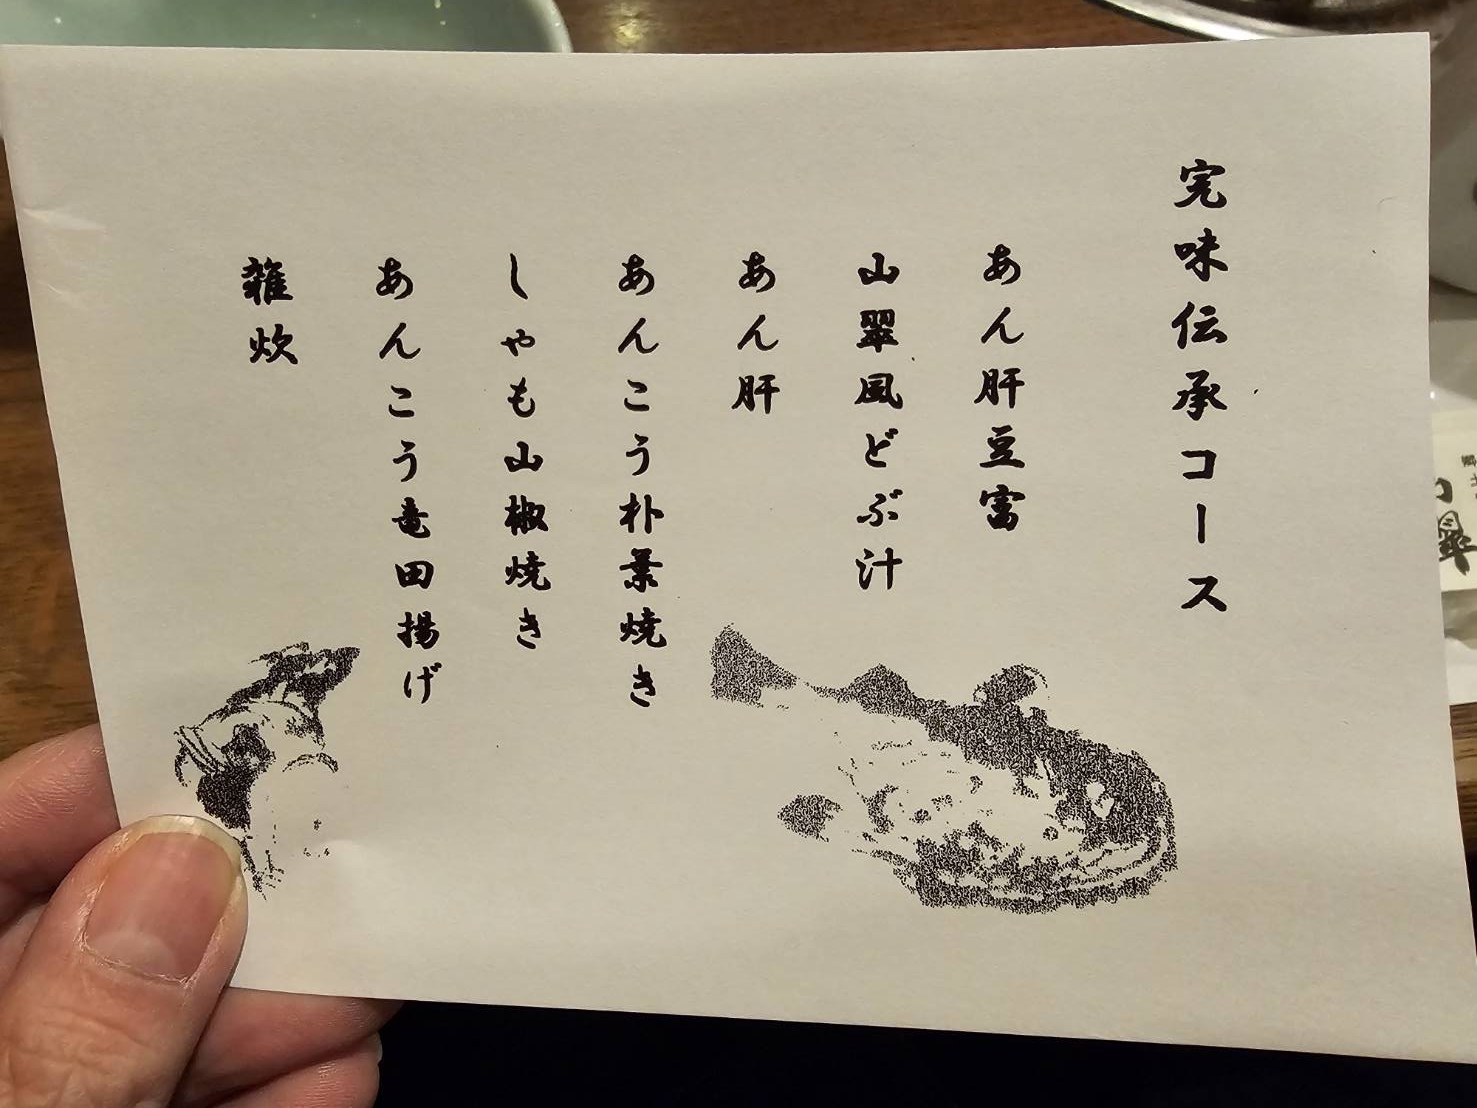 完味伝承コース
あん肝豆富
山翠風どぶ汁
あん肝
あんこう朴葉焼き
しゃも山椒焼き
あんこう竜田揚げ
雑炊